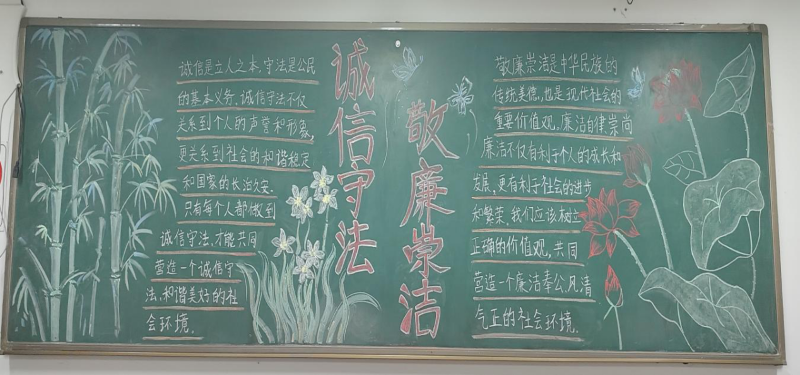 诚信是立人之本，守法是公民
的基本义务。诚信守法不仅
关系到个人的声誉和形象，
更关系到社会的和谐稳定
和国家的长治久安。
只有每个人都做到
诚信守法，才能共同
营造一个诚信守
法、和谐美好的社
会环境。
诚信守法
敬廉崇洁
敬廉崇洁是中华民族的
传统美德，也是现代社会的
重要价值观。廉洁自律崇尚
廉洁不仅有利于个人的成长和
发展，更有利于社会的进步
和繁荣。我们应该树立
正确的价值观，共同
营造一个廉洁奉公，风清
气正的社会环境。